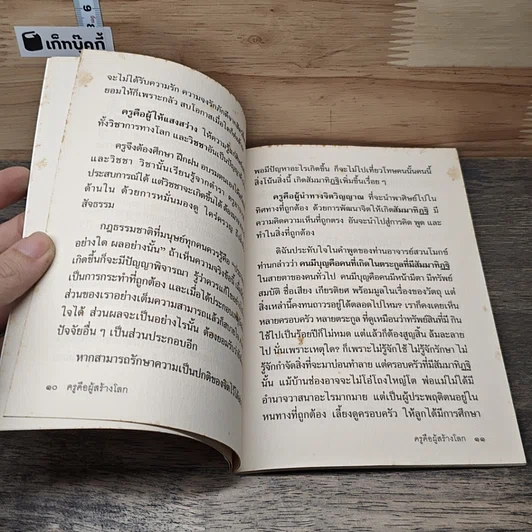 เก็ทบุ๊คกี้
จะไม่ได้รับความรัก ความจงรักภักดี
ยอมให้ก็เพราะกลัว สบโอกาสเมื่อใด
ครูคือผู้ให้แสงสว่าง ให้ความ
ทั้งวิชาการทางโลก และวิชชาอันเป็นปัญญา
ครูจึงต้องศึกษา ฝึกฝน อบรมตนเอง
และวิชชา วิชานั้นเรียนรู้จากตำรา
ประสบการณ์ได้ แต่วิชชาจะเกิดขึ้นได้ต้อง
ด้านใน ด้วยการหมั่นมองดู ใคร่ครวญ
สัจธรรม
กฎธรรมชาติที่มนุษย์ทุกคนควรรู้คือ
อย่างใด ผลอย่างนั้น” ถ้าเห็นความจริงข้อนี้
เกิดขึ้นก็จะมีปัญญาพิจารณา รู้ว่าควรแก้ไข
เป็นการกระทำที่ถูกต้อง และเมื่อได้ประกอบ
ส่วนของเราอย่างเต็มความสามารถแล้วก็
ใจได้ ส่วนผลจะเป็นอย่างไรนั้น ต้องยอมรับ
ปัจจัยอื่น ๆ เป็นส่วนประกอบอีก
หากสามารถรักษาความเป็นปกติของจิตไว้ได้
๑๐ ครูคือผู้สร้างโลก
พอมีปัญหาอะไรเกิดขึ้น ก็จะไม่ไปเที่ยวโทษคนนั้นคนนี้
สิ่งโน้นสิ่งนี้ เกิดสัมมาทิฏฐิเพิ่มขึ้นเรื่อย ๆ
ครูคือผู้นำทางจิตวิญญาณ ที่จะนำพาศิษย์ไปใน
ทิศทางที่ถูกต้อง ด้วยการพัฒนาจิตให้เกิดสัมมาทิฏฐิ มี
ความคิดความเห็นที่ถูกตรง อันจะนำไปสู่การคิด พูด และ
ทำในสิ่งที่ถูกต้อง
ดิฉันประทับใจในคำพูดของท่านอาจารย์สวนโมกข์
ท่านกล่าวว่า คนมีบุญคือคนที่เกิดในตระกูลที่มีสัมมาทิฏฐิ
ในสายตาของคนทั่วไป คนมีบุญคือคนมีหน้ามีตา มีทรัพย์
สมบัติ ชื่อเสียง เกียรติยศ พร้อมมูลในเรื่องของวัตถุ แต่
สิ่งเหล่านี้คงทนถาวรอยู่ได้ตลอดไปไหม? เราก็คงเคยเห็น
หลายครอบครัว หลายตระกูล ที่ดูเหมือนว่าทรัพย์สินที่มี กิน
ใช้ไปเป็นร้อยปีก็ไม่หมด แต่แล้วก็ต้องสูญสิ้น ล้มละลาย
ไป นั่นเพราะเหตุใด? ก็เพราะไม่รู้จักใช้ ไม่รู้จักรักษา ไม่
รู้จักกำจัดสิ่งที่จะมาบ่อนทำลาย แต่ครอบครัวที่มีสัมมาทิฏฐิ
นั้น แม้บ้านช่องอาจจะไม่โอ่โถงใหญ่โต พ่อแม่ไม่ได้มี
อำนาจวาสนาอะไรมากมาย แต่เป็นผู้ประพฤติตนอยู่ใน
หนทางที่ถูกต้อง เลี้ยงดูครอบครัว ให้ลูกได้มีการศึกษา
ครูคือผู้สร้างโลก ๑๑